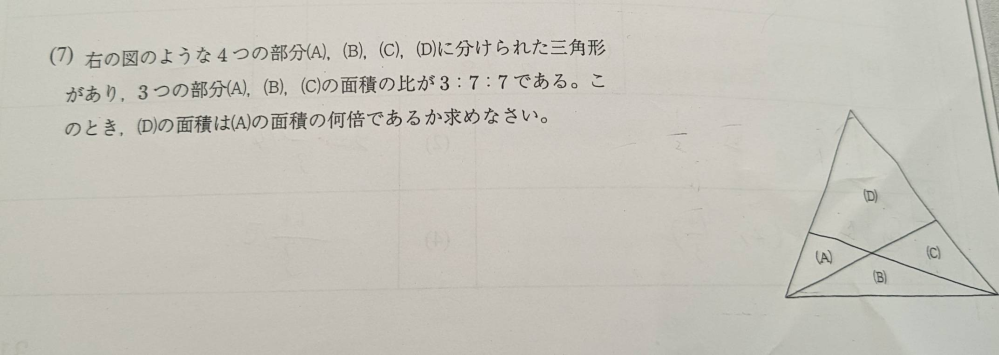 (7) 右の図のような4つの部分(A), (B), (C), (D)に分けられた三角形
があり, 3つの部分(A), (B), (C)の面積の比が3:7:7である。こ
のとき, (D)の面積は(A)の面積の何倍であるか求めなさい。
(D)
(A)
(C)
(B)